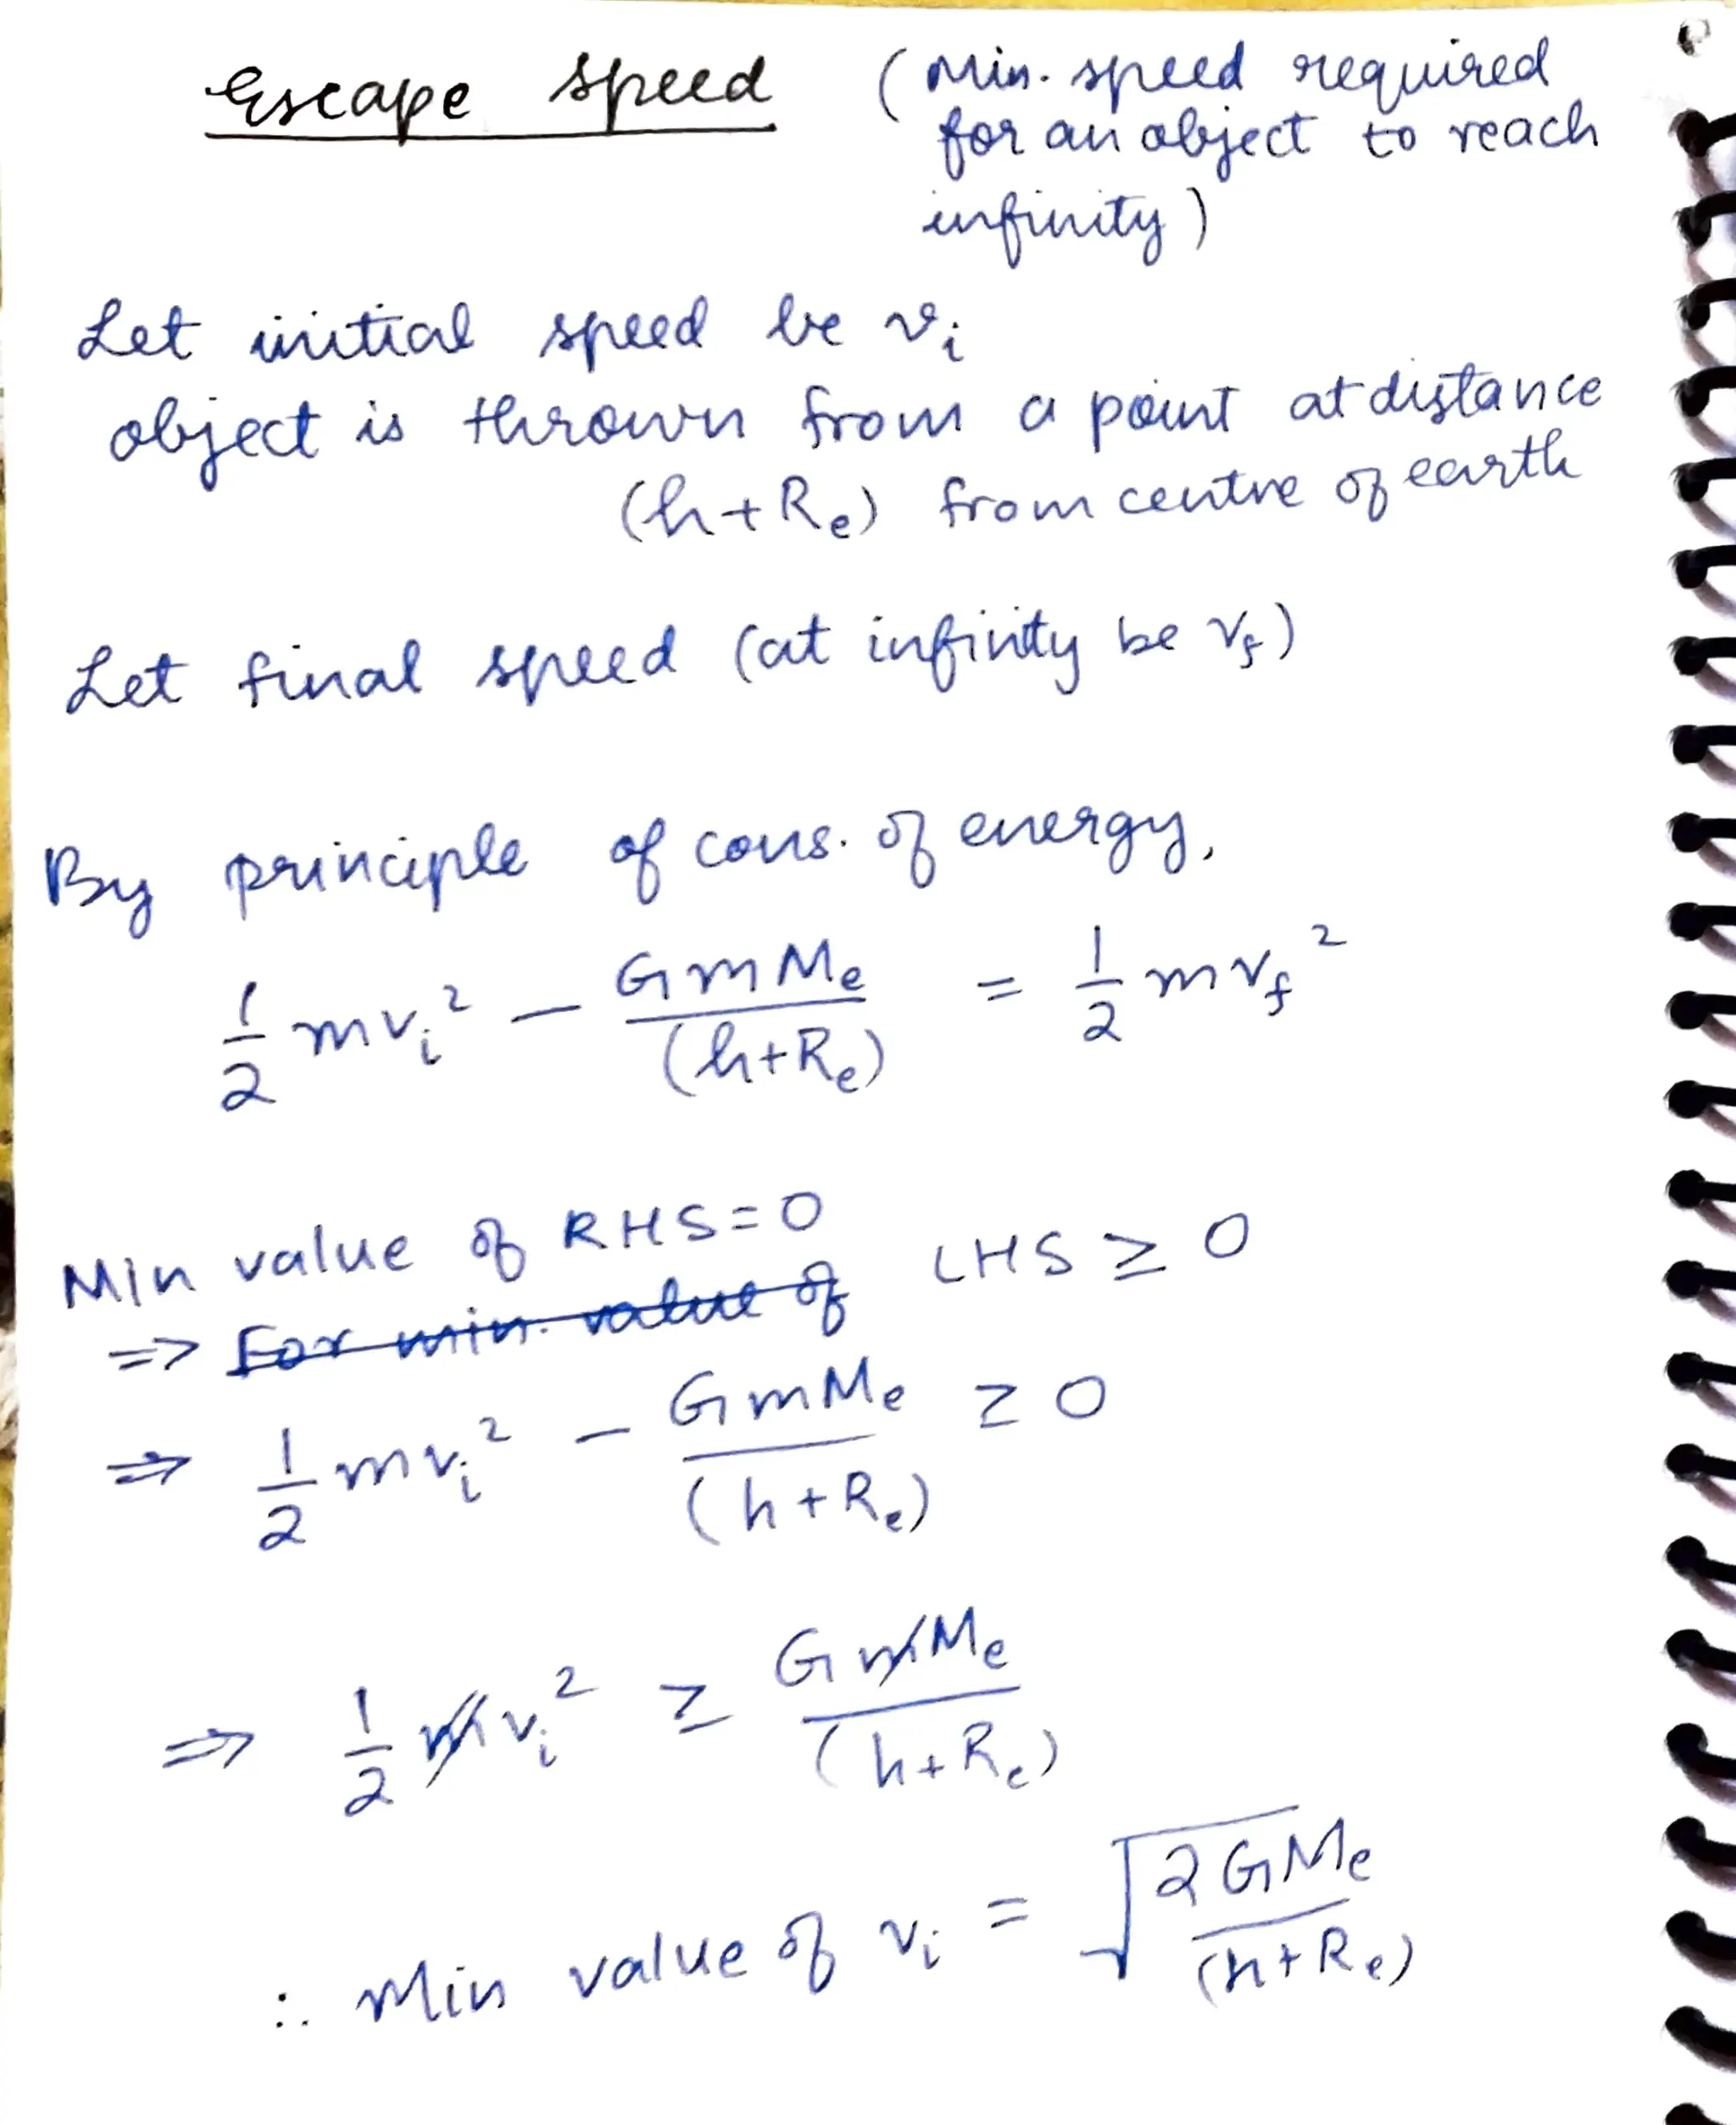 Escape speed (Min. speed required
for an object to reach
infinity)
Let initial speed be vᵢ
object is thrown from a point at distance
(h+Rₑ) from centre of earth
Let final speed (at infinity be v_f)
By principle of cons. of energy,
1/2 mvᵢ² − GmMₑ/(h+Rₑ) = 1/2 mv_f²
Min value of RHS=0 LHS ≥ 0
=> ~~For min. value of~~
=> 1/2 mvᵢ² − GmMₑ/(h+Rₑ) ≥ 0
=> 1/2 ~~m~~vᵢ² ≥ G~~m~~Mₑ/(h+Rₑ)
∴ Min value of vᵢ = √(2GMₑ/(h+Rₑ))